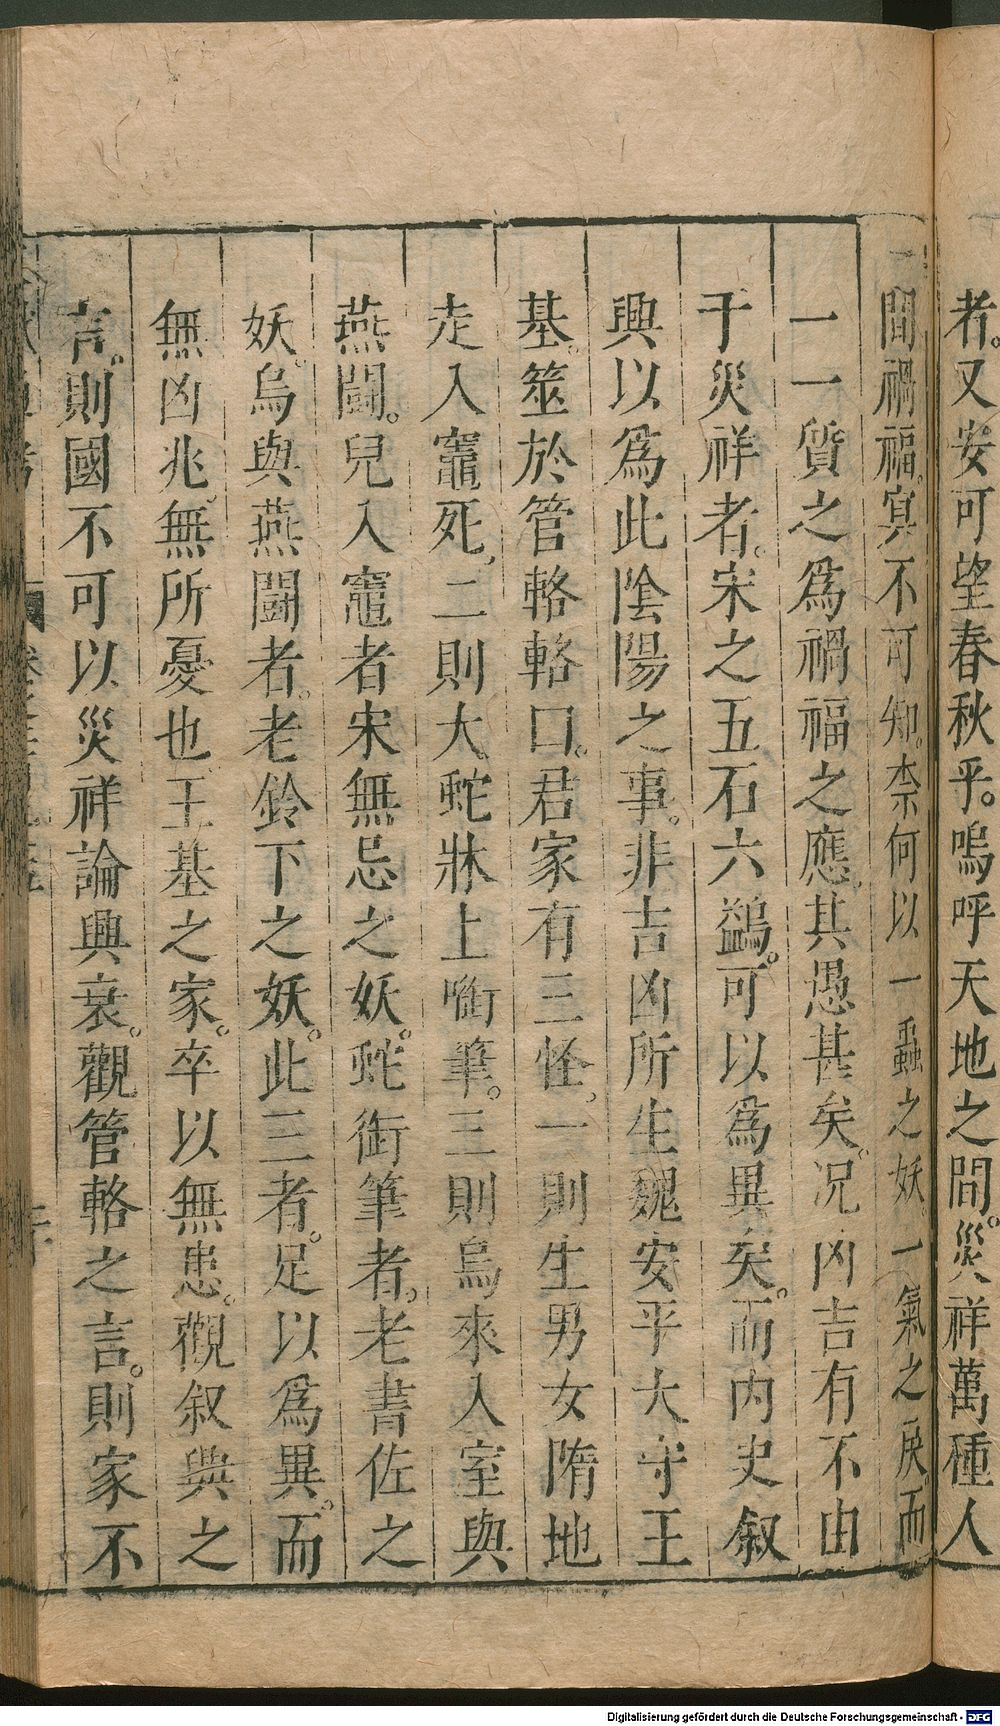 者。又安可望春秋乎。嗚呼天地之間。災祥萬種人
間禍福。冥不可知。柰何以一蟲之妖。一氣之戾。而
一一質之爲禍福之應。其愚甚矣。况凶吉有不由
于災祥者。宋之五石六鷁。可以爲異矣。而内史叙
興以爲此陰陽之事。非吉凶所生。魏安平大守王
基。筮於管輅。輅曰。君家有三怪。一則生男女隋地
走入竈死。二則大蛇牀上啣筆。三則烏來入室與
燕鬭。兒入竈者宋無忌之妖。蛇銜筆者。老書佐之
妖。烏與燕鬭者。老鈴下之妖。此三者。足以爲異。而
無凶兆。無所憂也。王基之家。卒以無患。觀叙興之
言。則國不可以災祥論興衰。觀管輅之言。則家不
Digitalisierung gefördert durch die Deutsche Forschungsgemeinschaft - DFG